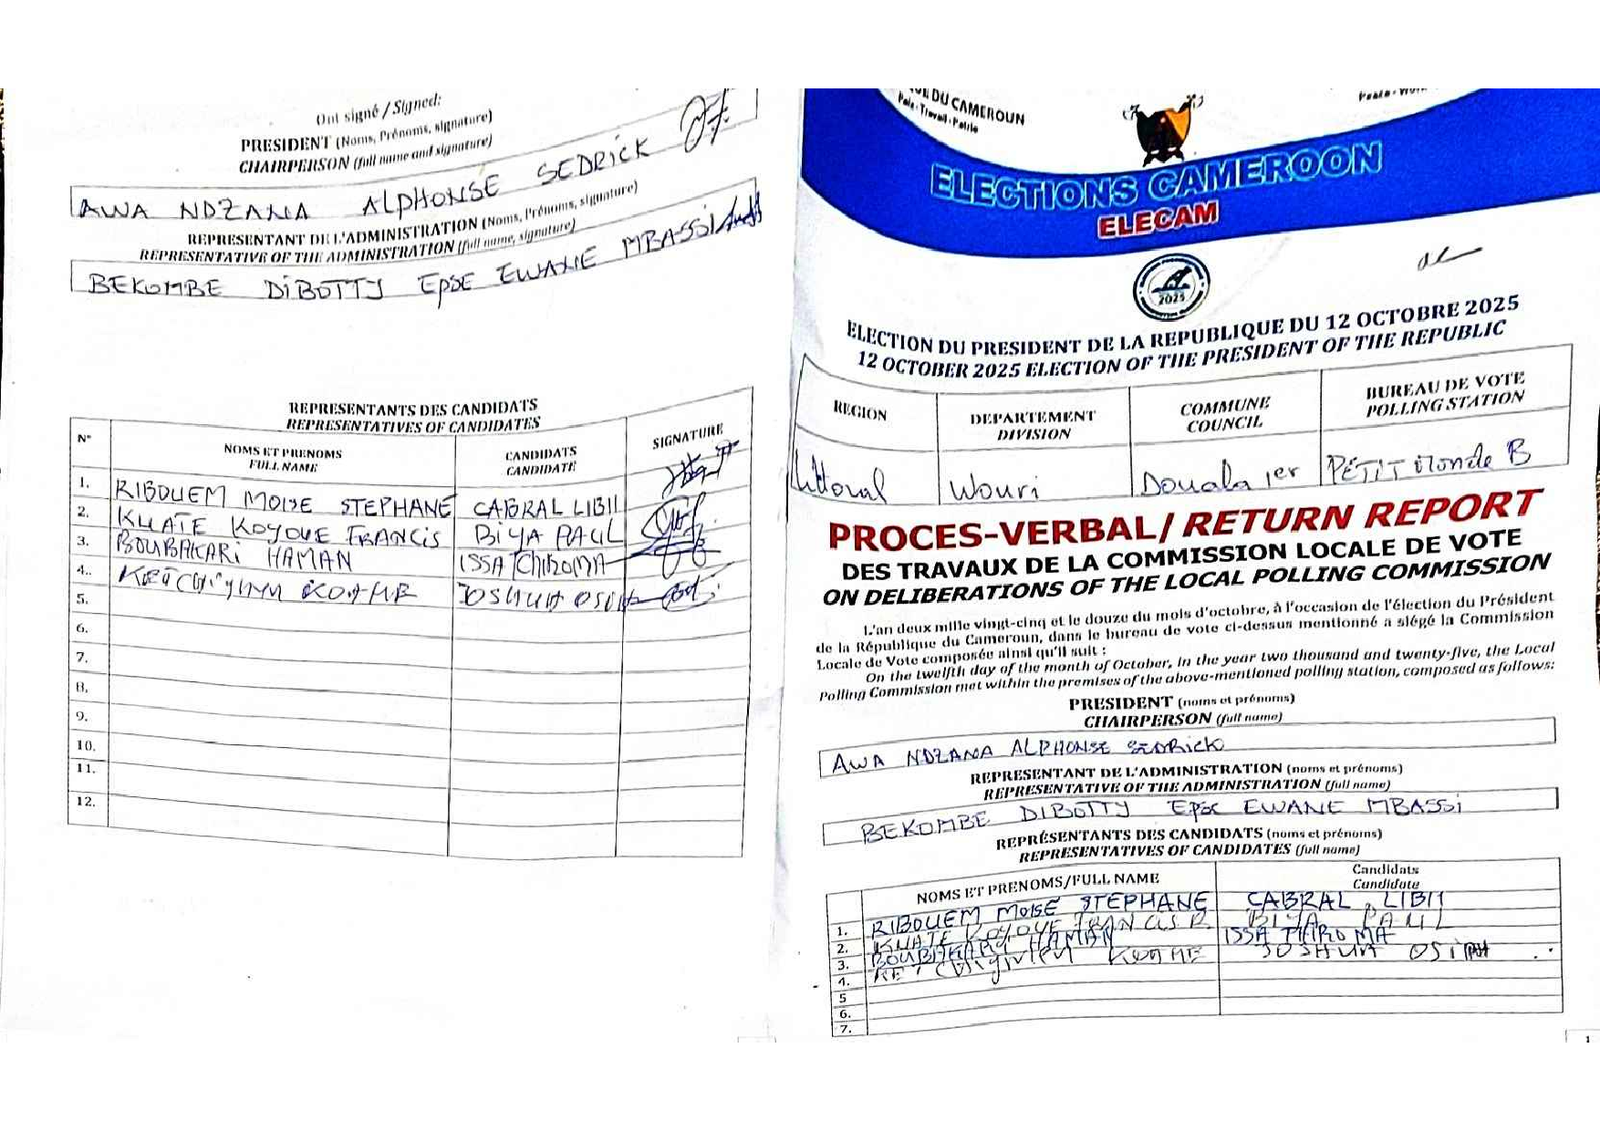 Ont signé / Signed:
PRESIDENT (Noms, Prénoms, signature)
CHAIRPERSON (full name and signature)
AWA NDZANA ALPHONSE SEDRICK
REPRESENTANT DE L'ADMINISTRATION (Noms, Prénoms, signature)
REPRESENTATIVE OF THE ADMINISTRATION (full name, signature)
BEKOMBE DIBOTTY Epse EWANE MBASSI
REPRESENTANTS DES CANDIDATS
REPRESENTATIVES OF CANDIDATES
N° NOMS ET PRENOMS FULL NAME CANDIDATS CANDIDATE SIGNATURE
1. RIBOUEM MOISE STEPHANE CABRAL LIBII
2. KUATE KOYOUE FRANCIS BIYA PAUL
3. BOUBAKARI HAMAN ISSA TCHIROMA
4. JOSHUA OSIH
5.
6.
7.
8.
9.
10.
11.
12.
UE DU CAMEROUN
Paix - Travail - Patrie
ELECTIONS CAMEROON
ELECAM
2025
ELECTION DU PRESIDENT DE LA REPUBLIQUE DU 12 OCTOBRE 2025
12 OCTOBER 2025 ELECTION OF THE PRESIDENT OF THE REPUBLIC
REGION DEPARTEMENT DIVISION COMMUNE COUNCIL BUREAU DE VOTE POLLING STATION
Littoral Wouri Douala 1er PETIT Monde B
PROCES-VERBAL / RETURN REPORT
DES TRAVAUX DE LA COMMISSION LOCALE DE VOTE
ON DELIBERATIONS OF THE LOCAL POLLING COMMISSION
L'an deux mille vingt-cinq et le douze du mois d'octobre, à l'occasion de l'élection du Président
de la République du Cameroun, dans le bureau de vote ci-dessus mentionné a siégé la Commission
Locale de Vote composée ainsi qu'il suit :
On the twelfth day of the month of October, in the year two thousand and twenty-five, the Local
Polling Commission met within the premises of the above-mentioned polling station, composed as follows:
PRESIDENT (noms et prénoms)
CHAIRPERSON (full name)
AWA NDZANA ALPHONSE SEDRICK
REPRESENTANT DE L'ADMINISTRATION (noms et prénoms)
REPRESENTATIVE OF THE ADMINISTRATION (full name)
BEKOMBE DIBOTTY Epse EWANE MBASSI
REPRÉSENTANTS DES CANDIDATS (noms et prénoms)
REPRESENTATIVES OF CANDIDATES (full name)
NOMS ET PRENOMS/FULL NAME Candidats Candidate
1. RIBOUEM MOISE STEPHANE CABRAL LIBII
2. KUATE KOYOUE FRANCIS BIYA PAUL
3. BOUBAKARI HAMAN ISSA
4. JOSHUA OSIH
5
6.
7.
1